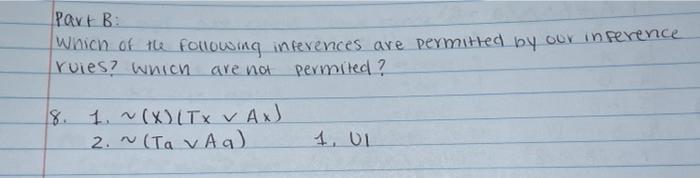 Part B:
Which of the following inferences are permitted by our inference
rules? Which are not permited?
8. 1. ~(x)(Tx v Ax)
2. ~(Ta v Aa) 1, UI